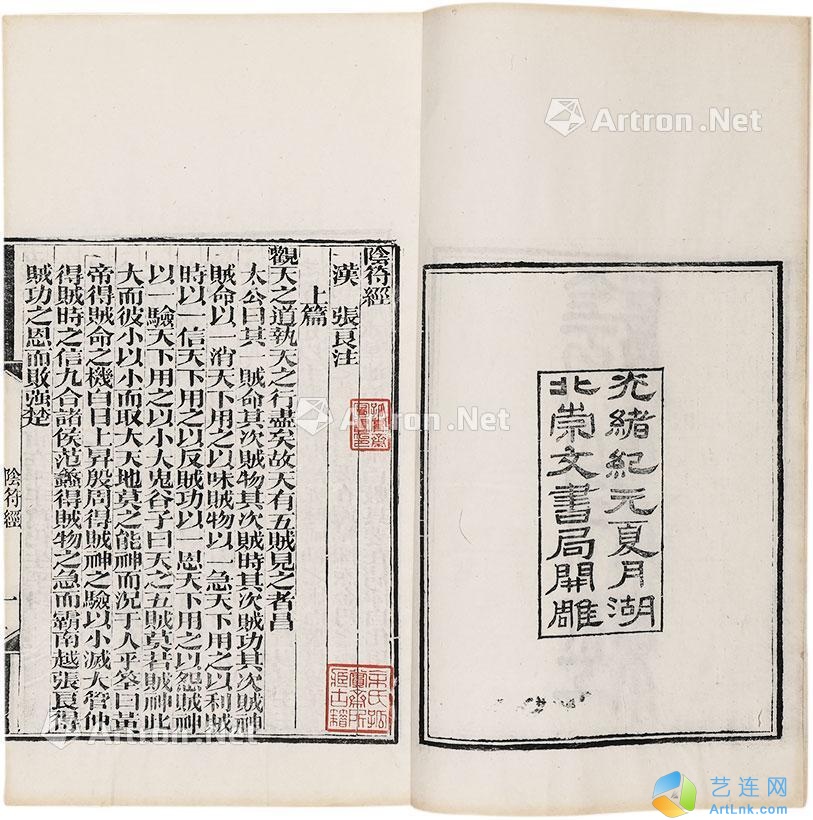 光緒紀元夏月湖
北崇文書局開雕
陰符經
漢 張良注
上篇
觀天之道執天之行盡矣故天有五賊見之者昌
太公曰其一賊命其次賊物其次賊時其次賊功其次賊神
賊命以一消天下用之以味賊物以一急天下用之以利賊
時以一信天下用之以反賊功以一恩天下用之以怨賊神
以一驗天下用之以小大鬼谷子曰天之五賊莫若賊神此
大而彼小以小而取大天地莫之能神而況于人乎筌曰黃
帝得賊命之機白日上昇殷周得賊神之驗以小滅大管仲
得賊時之信九合諸侯范蠡得賊物之急而霸南越張良得
賊功之恩而敗強楚
陰符經
一
Artron.Net
Artron.Net
Artron.Net
Artron.Net
Artron.Net
艺连网
ArtLnk.com